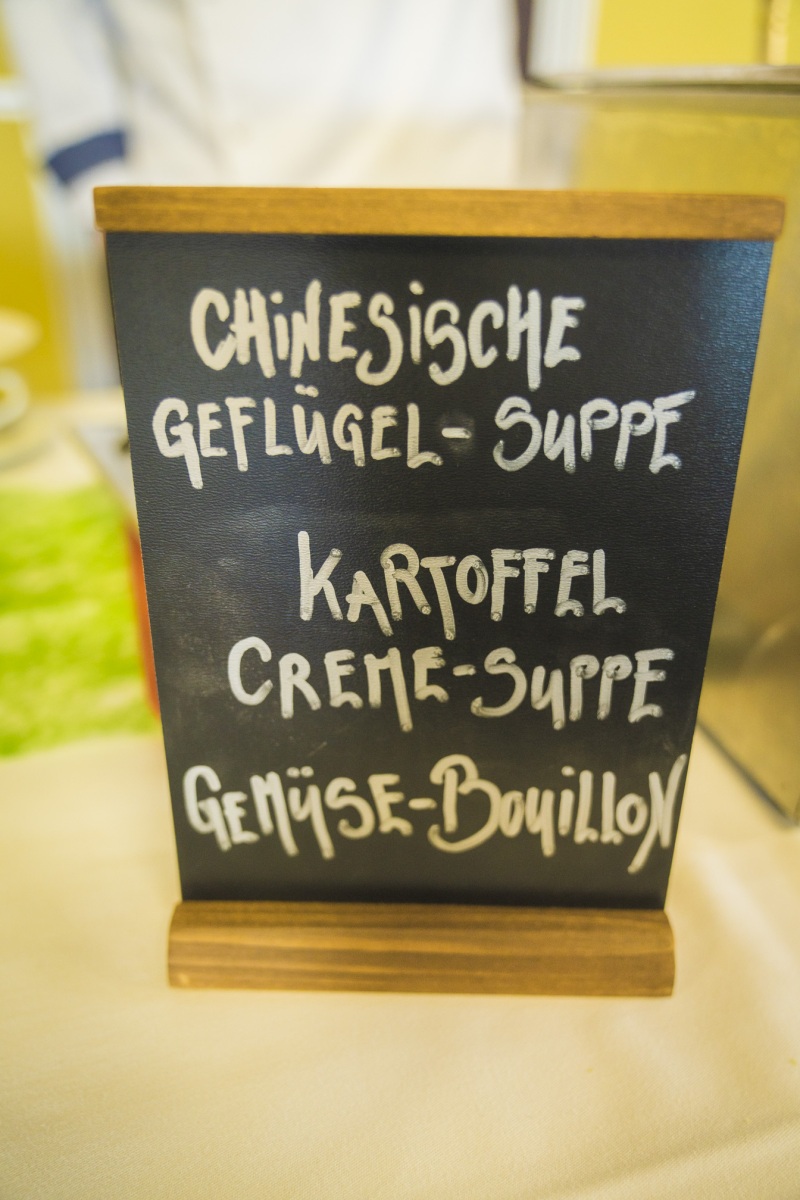 CHINESISCHE
GEFLÜGEL- SUPPE
KARTOFFEL
CREME-SUPPE
GEMÜSE-BOUILLON